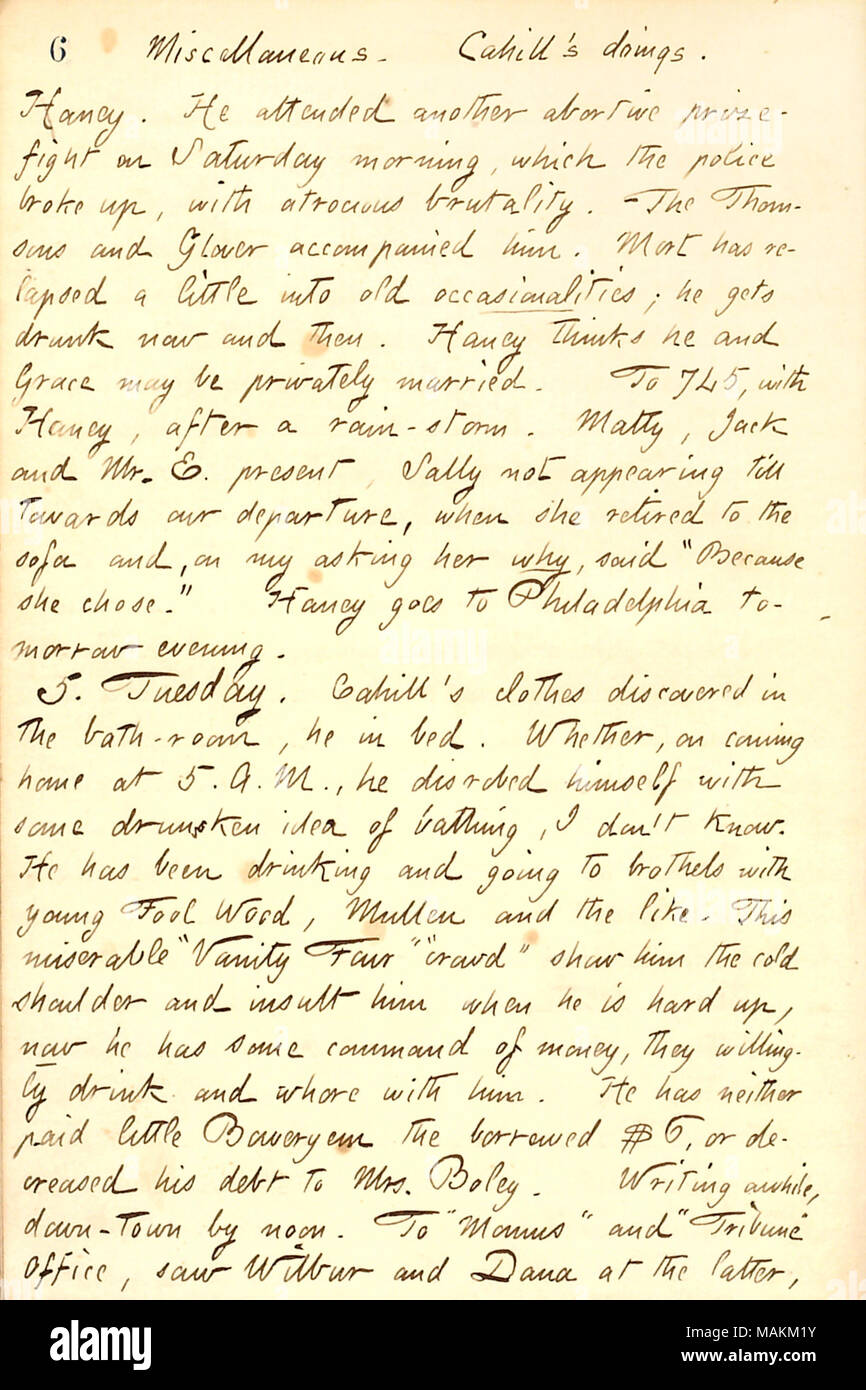 6 Miscellaneous. Cahill's doings.
Haney. He attended another abortive prize-
fight on Saturday morning, which the police
broke up, with atrocious brutality. The Thom-
sons and Glover accompanied him. Mort has re-
lapsed a little into old occasionalities; he gets
drunk now and then. Haney thinks he and
Grace may be privately married. To 745, with
Haney, after a rain-storm. Matty, Jack
and Mr. E. present, Sally not appearing till
towards our departure, when she retired to the
sofa and, on my asking her why, said "Because
she chose." Haney goes to Philadelphia to-
morrow evening.
5. Tuesday. Cahill's clothes discovered in
the bath-room, he in bed. Whether, on coming
home at 5. A.M., he disrobed himself with
some drunken idea of bathing, I don't know.
He has been drinking and going to brothels with
young Fool Wood, Mullen and the like. This
miserable "Vanity Fair" "crowd" show him the cold
shoulder and insult him when he is hard up,
now he has some command of money, they willing-
ly drink and whore with him. He has neither
paid little Boweryem the borrowed $6, or de-
creased his debt to Mrs. Boley. Writing awhile,
down-town by noon. To "Momus" and "Tribune"
Office, saw Wilbur and Dana at the latter,
alamy
Image ID: MAKM1Y
www.alamy.com